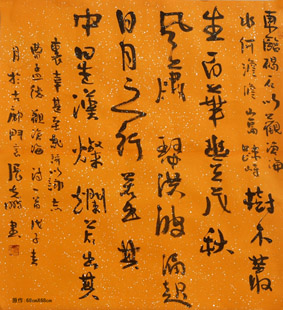 東臨碣石以觀滄海
水何澹澹山島竦峙樹木叢
生百草豐茂秋
風蕭瑟洪波湧起
日月之行若出其
中星漢燦爛若出其
裏幸甚至哉歌以詠志
曹孟德觀滄海詩一首戊子春
月於京
原作: